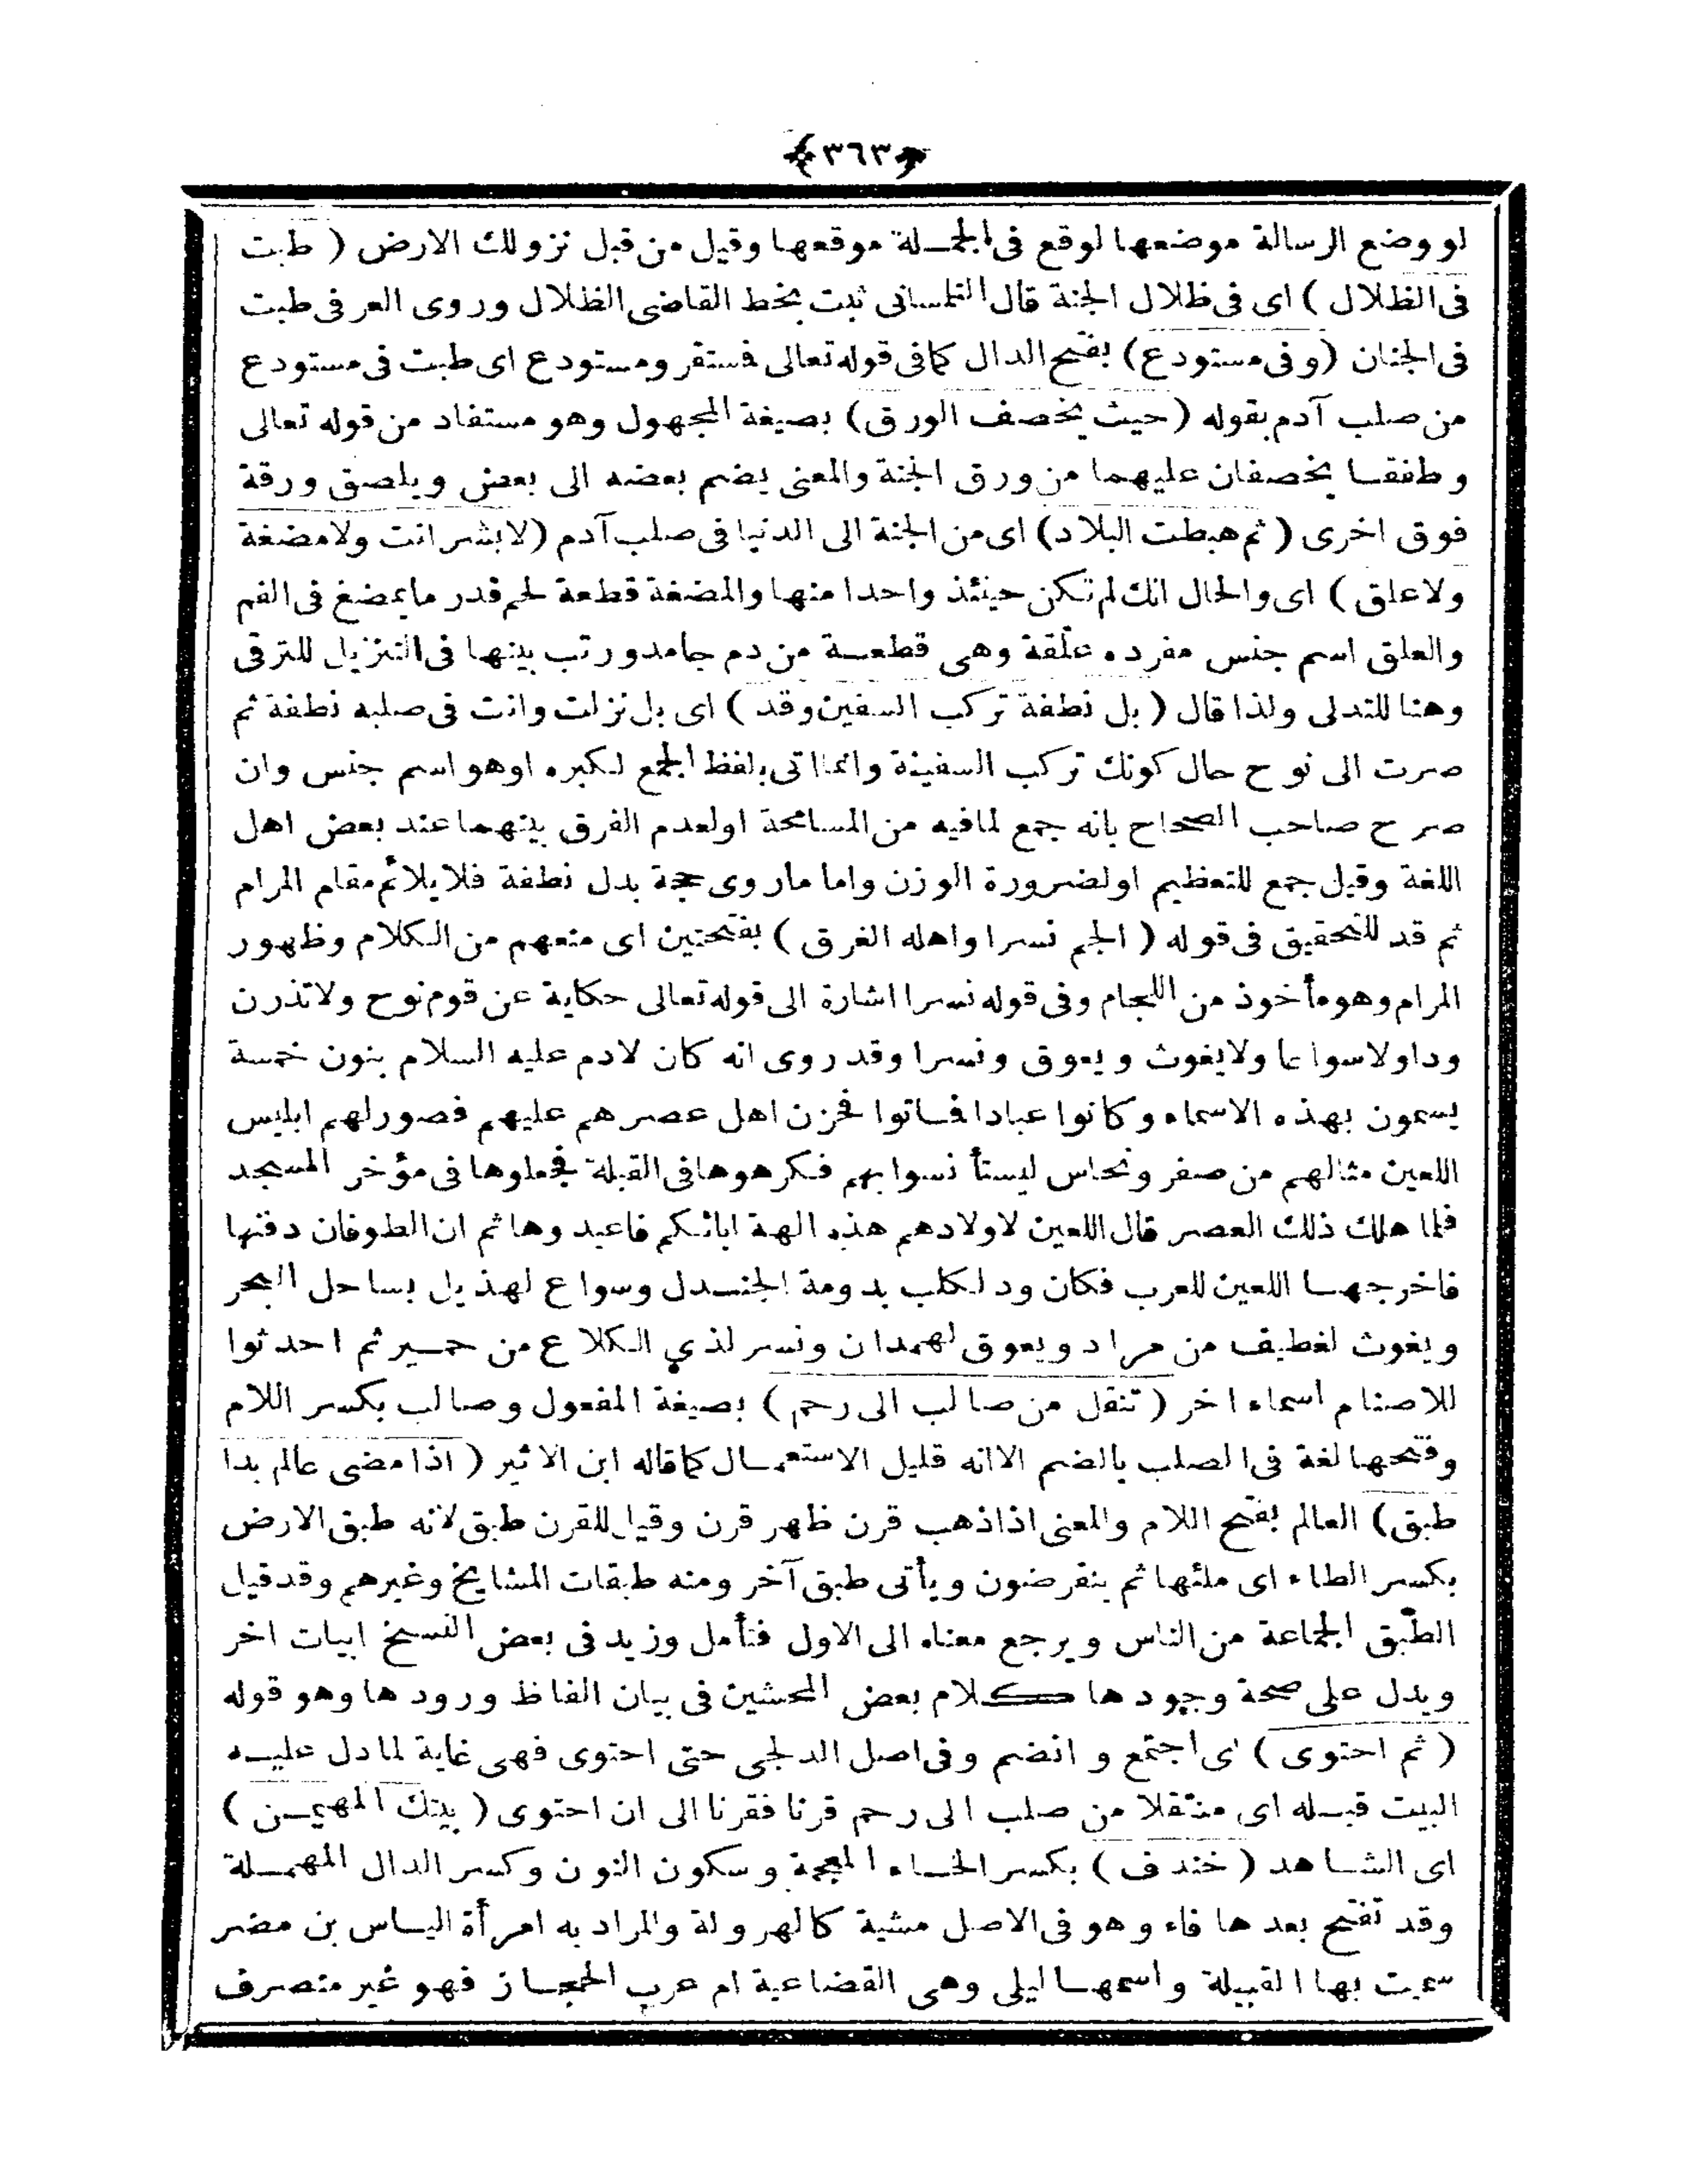 ﴿٣٦٣﴾
لو وضع الرسالة موضعها لوقع فى الجملة موقعها وقيل من قبل نزولك الارض ( طبت
فى الظلال ) اى فى ظلال الجنة قال التلمسانى ثبت بخط القاضى الظلال وروى العرفى طبت
فى الجنان (وفى مستودع) بفتح الدال كما فى قوله تعالى فمستقر ومستودع اى طبت فى مستودع
من صلب آدم بقوله (حيث يخصف الورق) بصيغة المجهول وهو مستفاد من قوله تعالى
وطفقا يخصفان عليهما من ورق الجنة والمعنى يضم بعضه الى بعض ويلصق ورقة
فوق اخرى ( ثم هبطت البلاد) اى من الجنة الى الدنيا فى صلب آدم (لا بشر انت ولا مضغة
ولا علق ) اى والحال انك لم تكن حينئذ واحدا منها والمضغة قطعة لحم قدر ما يمضغ فى الفم
والعلق اسم جنس مفرده علقة وهى قطعة من دم جامد ورتب بينها فى التنزيل للترقى
وهنا للتدلى ولذا قال ( بل نطفة تركب السفين وقد ) اى بل نزلت وانت فى صلبه نطفة ثم
صرت الى نوح حال كونك تركب السفينة وانما اتى بلفظ الجمع لكبره او هو اسم جنس وان
صرح صاحب الصحاح بانه جمع لما فيه من المسامحة او لعدم الفرق بينهما عند بعض اهل
اللغة وقيل جمع للتعظيم او لضرورة الوزن واما ما روى حجة بدل نطفة فلا يلائم مقام المرام
ثم قد للتحقيق فى قوله ( الجم نسرا واهله الغرق ) بفتحتين اى منعهم من الكلام وظهور
المرام وهو مأخوذ من اللجام وفى قوله نسرا اشارة الى قوله تعالى حكاية عن قوم نوح ولا تذرن
ودا ولا سواعا ولا يغوث ويعوق ونسرا وقد روى انه كان لادم عليه السلام بنون خمسة
يسمون بهذه الاسماء وكانوا عبادا فماتوا فحزن اهل عصرهم عليهم فصور لهم ابليس
اللعين مثالهم من صفر ونحاس ليستأنسوا بهم فكرهوها فى القبلة فجعلوها فى مؤخر المسجد
فلما هلك ذلك العصر قال اللعين لاولادهم هذه الهة ابائكم فاعبدوها ثم ان الطوفان دفنها
فاخرجها اللعين للعرب فكان ود لكلب بدومة الجندل وسواع لهذيل بساحل البحر
ويغوث لغطيف من مراد ويعوق لهمدان ونسر لذي الكلاع من حمير ثم احدثوا
للاصنام اسماء اخر ( تنقل من صالب الى رحم ) بصيغة المفعول وصالب بكسر اللام
وفتحها لغة فى الصلب بالضم الا انه قليل الاستعمال كما قاله ابن الاثير ( اذا مضى عالم بدا
طبق) العالم بفتح اللام والمعنى اذا ذهب قرن ظهر قرن وقيل للقرن طبق لانه طبق الارض
بكسر الطاء اى ملئها ثم ينقرضون ويأتى طبق آخر ومنه طبقات المشايخ وغيرهم وقد قيل
الطبق الجماعة من الناس ويرجع معناه الى الاول فتأمل وزيد فى بعض النسخ ابيات اخر
ويدل على صحة وجودها كلام بعض المحشين فى بيان الفاظ ورودها وهو قوله
( ثم احتوى ) اى اجتمع و انضم وفى اصل الدلجى حتى احتوى فهى غاية لما دل عليه
البيت قبله اى منتقلا من صلب الى رحم قرنا فقرنا الى ان احتوى ( بيتك المهيمن )
اى الشاهد ( خندف ) بكسر الخاء المعجمة وسكون النون وكسر الدال المهملة
وقد تفتح بعدها فاء وهو فى الاصل مشية كالهرولة والمراد به امرأة الياس بن مضر
سميت بها القبيلة واسمها ليلى وهى القضاعية ام عرب الحجاز فهو غير منصرف